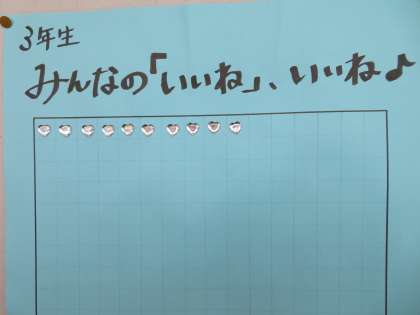 3年生
みんなの「いいね」、いいね♪